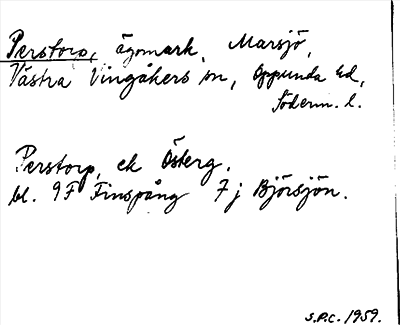 Perstorp, ägomark, Marsjö,
Västra Vingåkers sn, Oppunda hd,
Söderm. l.
Perstorp, ek Österg.
bl. 9F Finspång 7j Björsjön.
S.P.C. 1959.